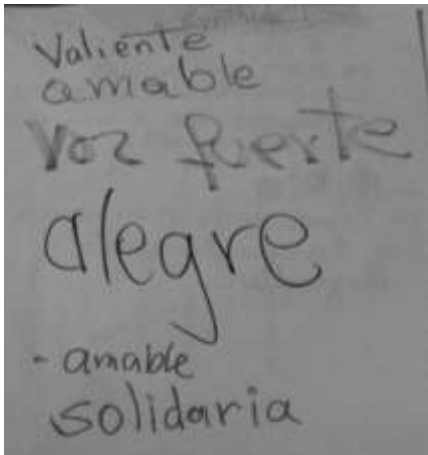 Valiente
amable
Voz fuerte
alegre
- amable
solidaria